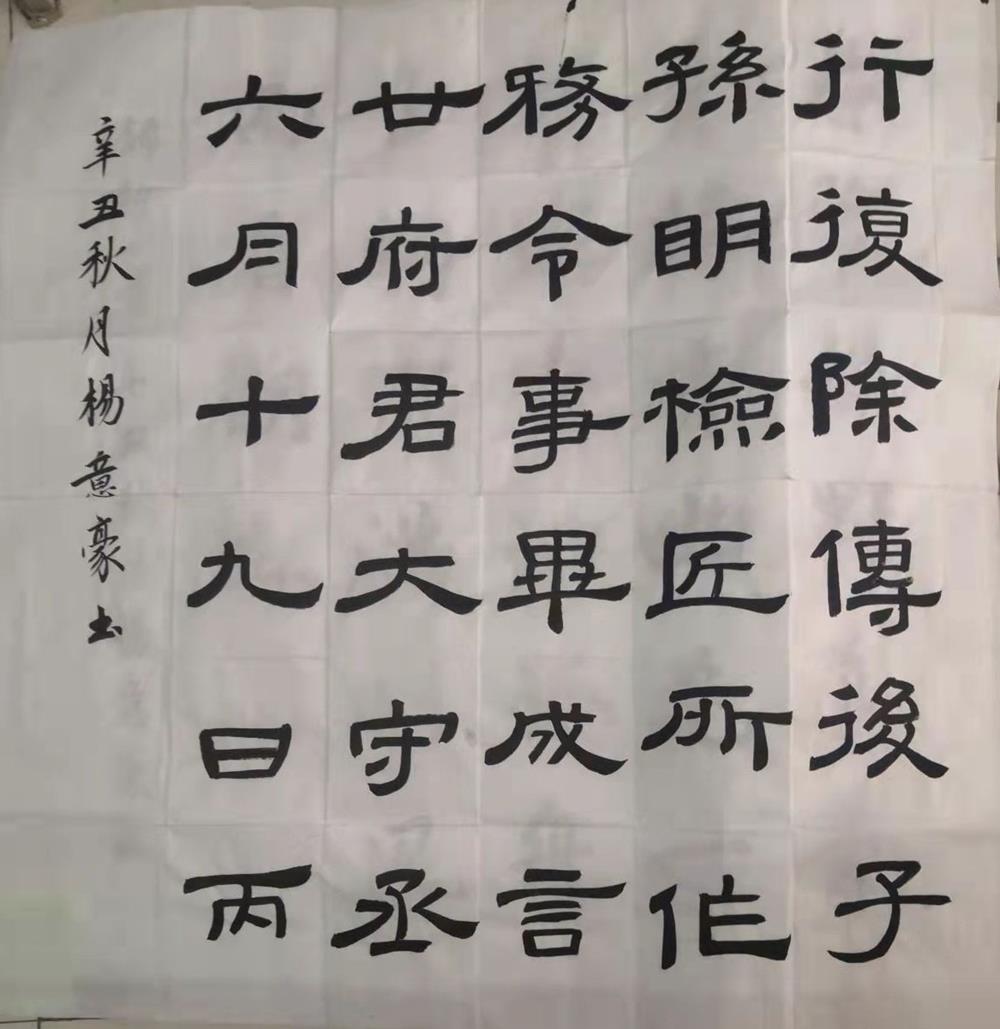 行復除傳後子
孫明檢匠所作
務令事畢成言
廿府君大守丞
六月十九日丙
辛丑秋月楊意豪书